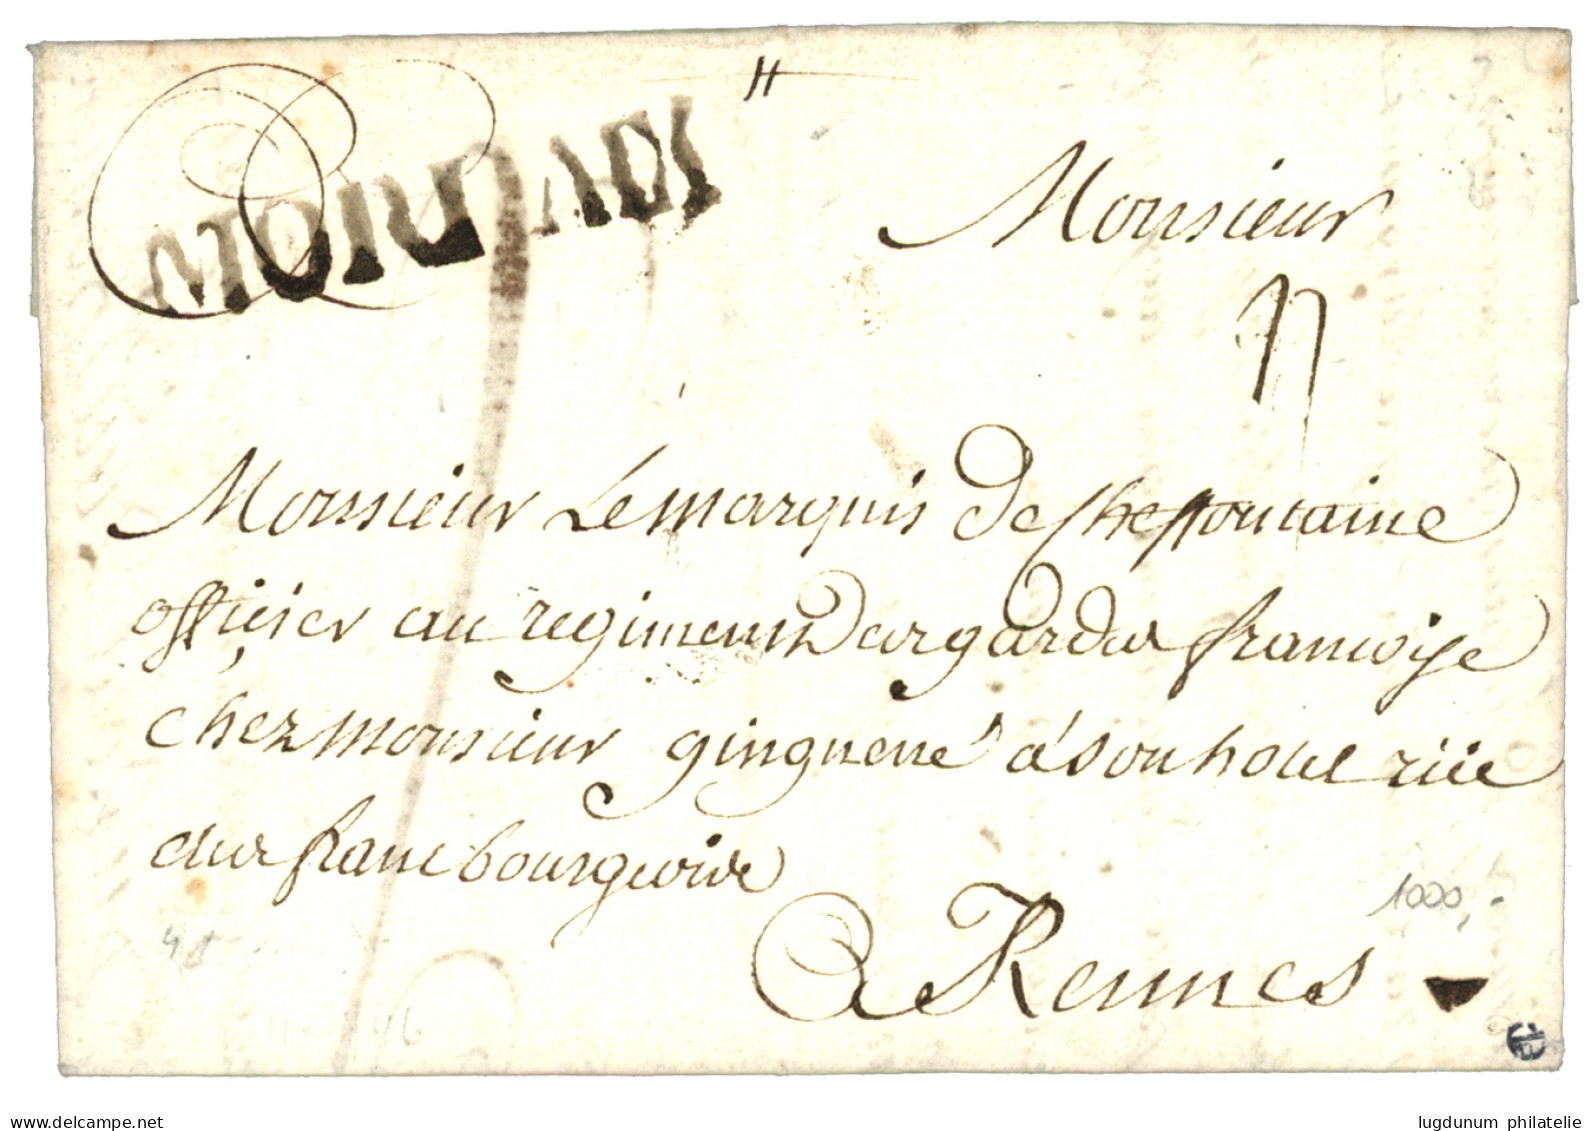 MORLAIX
Monsieur
Monsieur Le marquis De Cheffontaine
officier au regiment Des gardes françoise
chez monsieur ginguené a son hotel rüe
des franc bourgeois
A Rennes
1000,-
www.delcampe.net
lugdunum philatelie